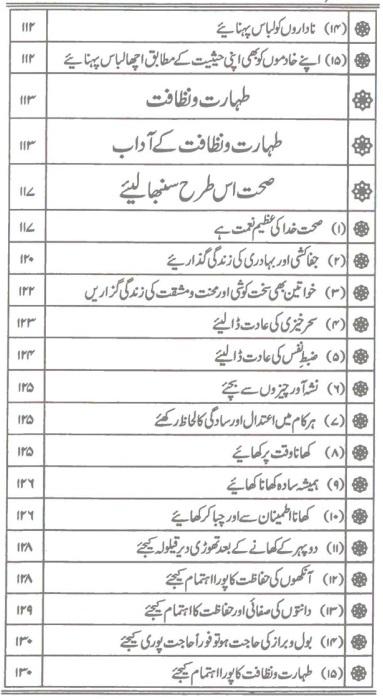 (۱۴) ناداروں کو لباس پہنائیے ۱۱۲
(۱۵) اپنے خادموں کو بھی اپنی حیثیت کے مطابق اچھا لباس پہنائیے ۱۱۲
طہارت و نظافت ۱۱۳
طہارت و نظافت کے آداب ۱۱۳
صحت اس طرح سنبھالیئے ۱۱۷
(۱) صحت خدا کی عظیم نعمت ہے ۱۱۷
(۲) جفاکشی اور بہادری کی زندگی گذاریئے ۱۲۰
(۳) خواتین بھی سخت کوشی اور محنت و مشقت کی زندگی گزاریں ۱۲۲
(۴) سحر خیزی کی عادت ڈالیئے ۱۲۳
(۵) ضبطِ نفس کی عادت ڈالیئے ۱۲۴
(۶) نشہ آور چیزوں سے بچئے ۱۲۵
(۷) ہر کام میں اعتدال اور سادگی کا لحاظ رکھئے ۱۲۵
(۸) کھانا وقت پر کھائیے ۱۲۵
(۹) ہمیشہ سادہ کھانا کھائیے ۱۲۶
(۱۰) کھانا اطمینان سے اور چبا کر کھائیے ۱۲۶
(۱۱) دوپہر کے کھانے کے بعد تھوڑی دیر قیلولہ کیجئے ۱۲۸
(۱۲) آنکھوں کی حفاظت کا پورا اہتمام کیجئے ۱۲۸
(۱۳) دانتوں کی صفائی اور حفاظت کا اہتمام کیجئے ۱۲۹
(۱۴) بول و براز کی حاجت ہو تو فوراً حاجت پوری کیجئے ۱۳۰
(۱۵) طہارت و نظافت کا پورا اہتمام کیجئے ۱۳۰